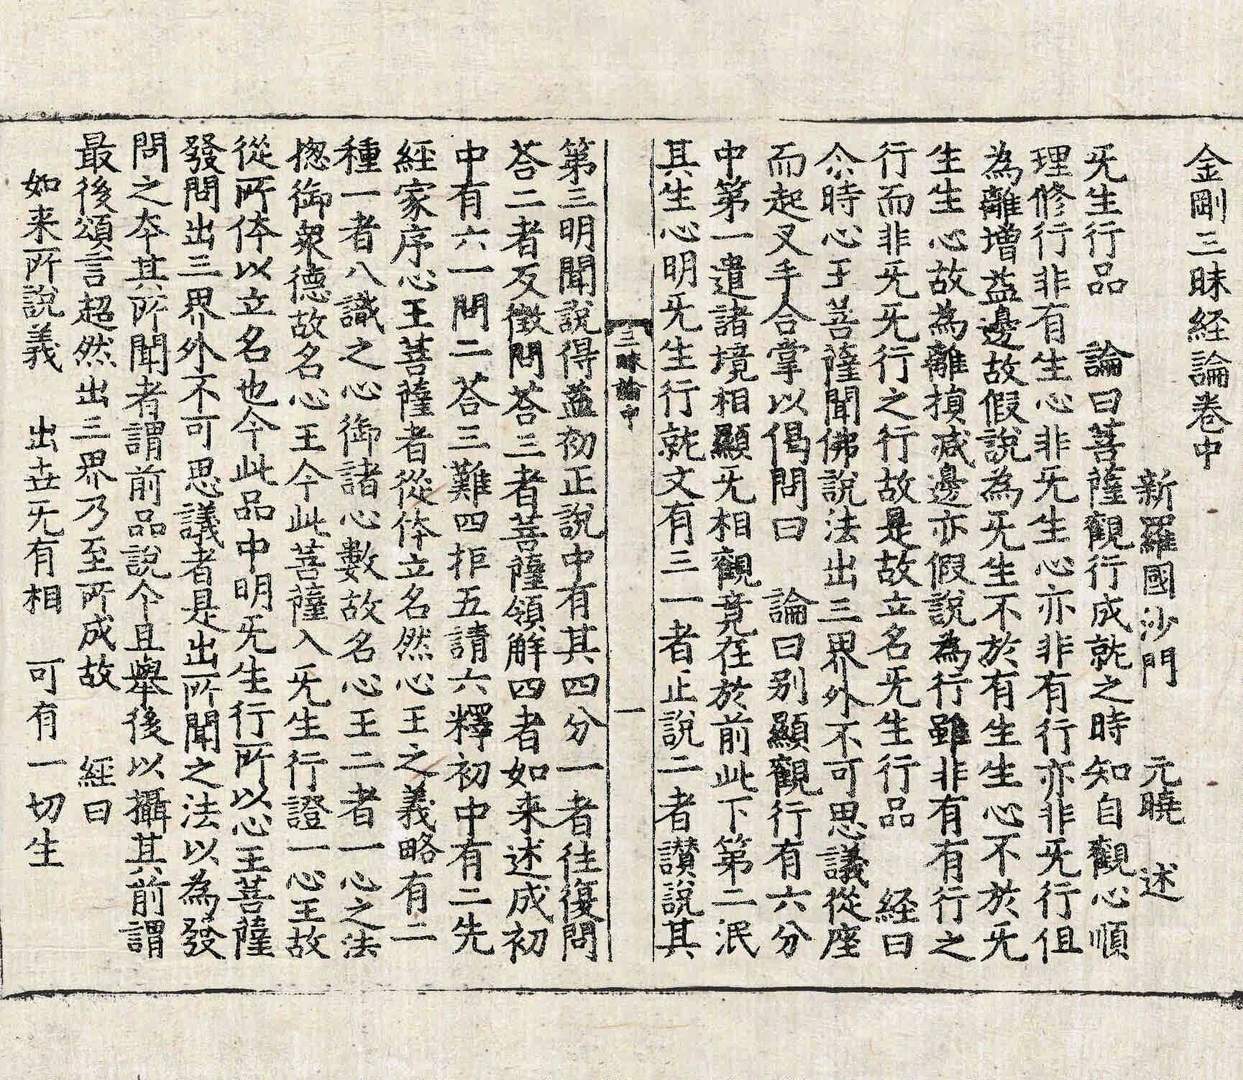 金剛三昧経論卷中
新羅國沙門 元曉 述
旡生行品 論曰菩薩觀行成就之時知自觀心順
理修行非有生心非旡生心亦非有行亦非旡行但
為離增益邊故假說為旡生不於有生生心不於旡
生生心故為離損减邊亦假說為行雖非有有行之
行而非旡旡行之行故是故立名旡生行品 経曰
尒時心王菩薩聞佛說法出三界外不可思議從座
而起叉手合掌以偈問曰 論曰别顯觀行有六分
中第一遣諸境相顯旡相觀竟在於前此下第二泯
其生心明旡生行就文有三一者正說二者讃說其
三昧論中 一
第三明聞說得益初正說中有其四分一者往復問
荅二者反徵問荅三者菩薩領解四者如来述成初
中有六一問二荅三難四拒五請六釋初中有二先
經家序心王菩薩者從体立名然心王之義略有二
種一者八識之心御諸心數故名心王二者一心之法
揔御衆德故名心王今此菩薩入旡生行證一心王故
從所体以立名也今此品中明旡生行所以心王菩薩
發問出三界外不可思議者是出所聞之法以為發
問之夲其所聞者謂前品說今且舉後以攝其前謂
最後頌言超然出三界乃至所成故 経曰
如来所說義 出世旡有相 可有一切生